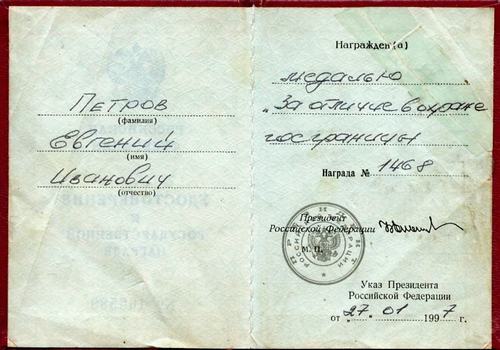 Петров
(фамилия)
Евгений
(имя)
Иванович
(отчество)
Награжден(а)
медалью
„За отличие в охране
госграницы
Награда № 1468
Президент
Российской Федерации
М. П.
Указ Президента
Российской Федерации
от 27.01 1997 г.